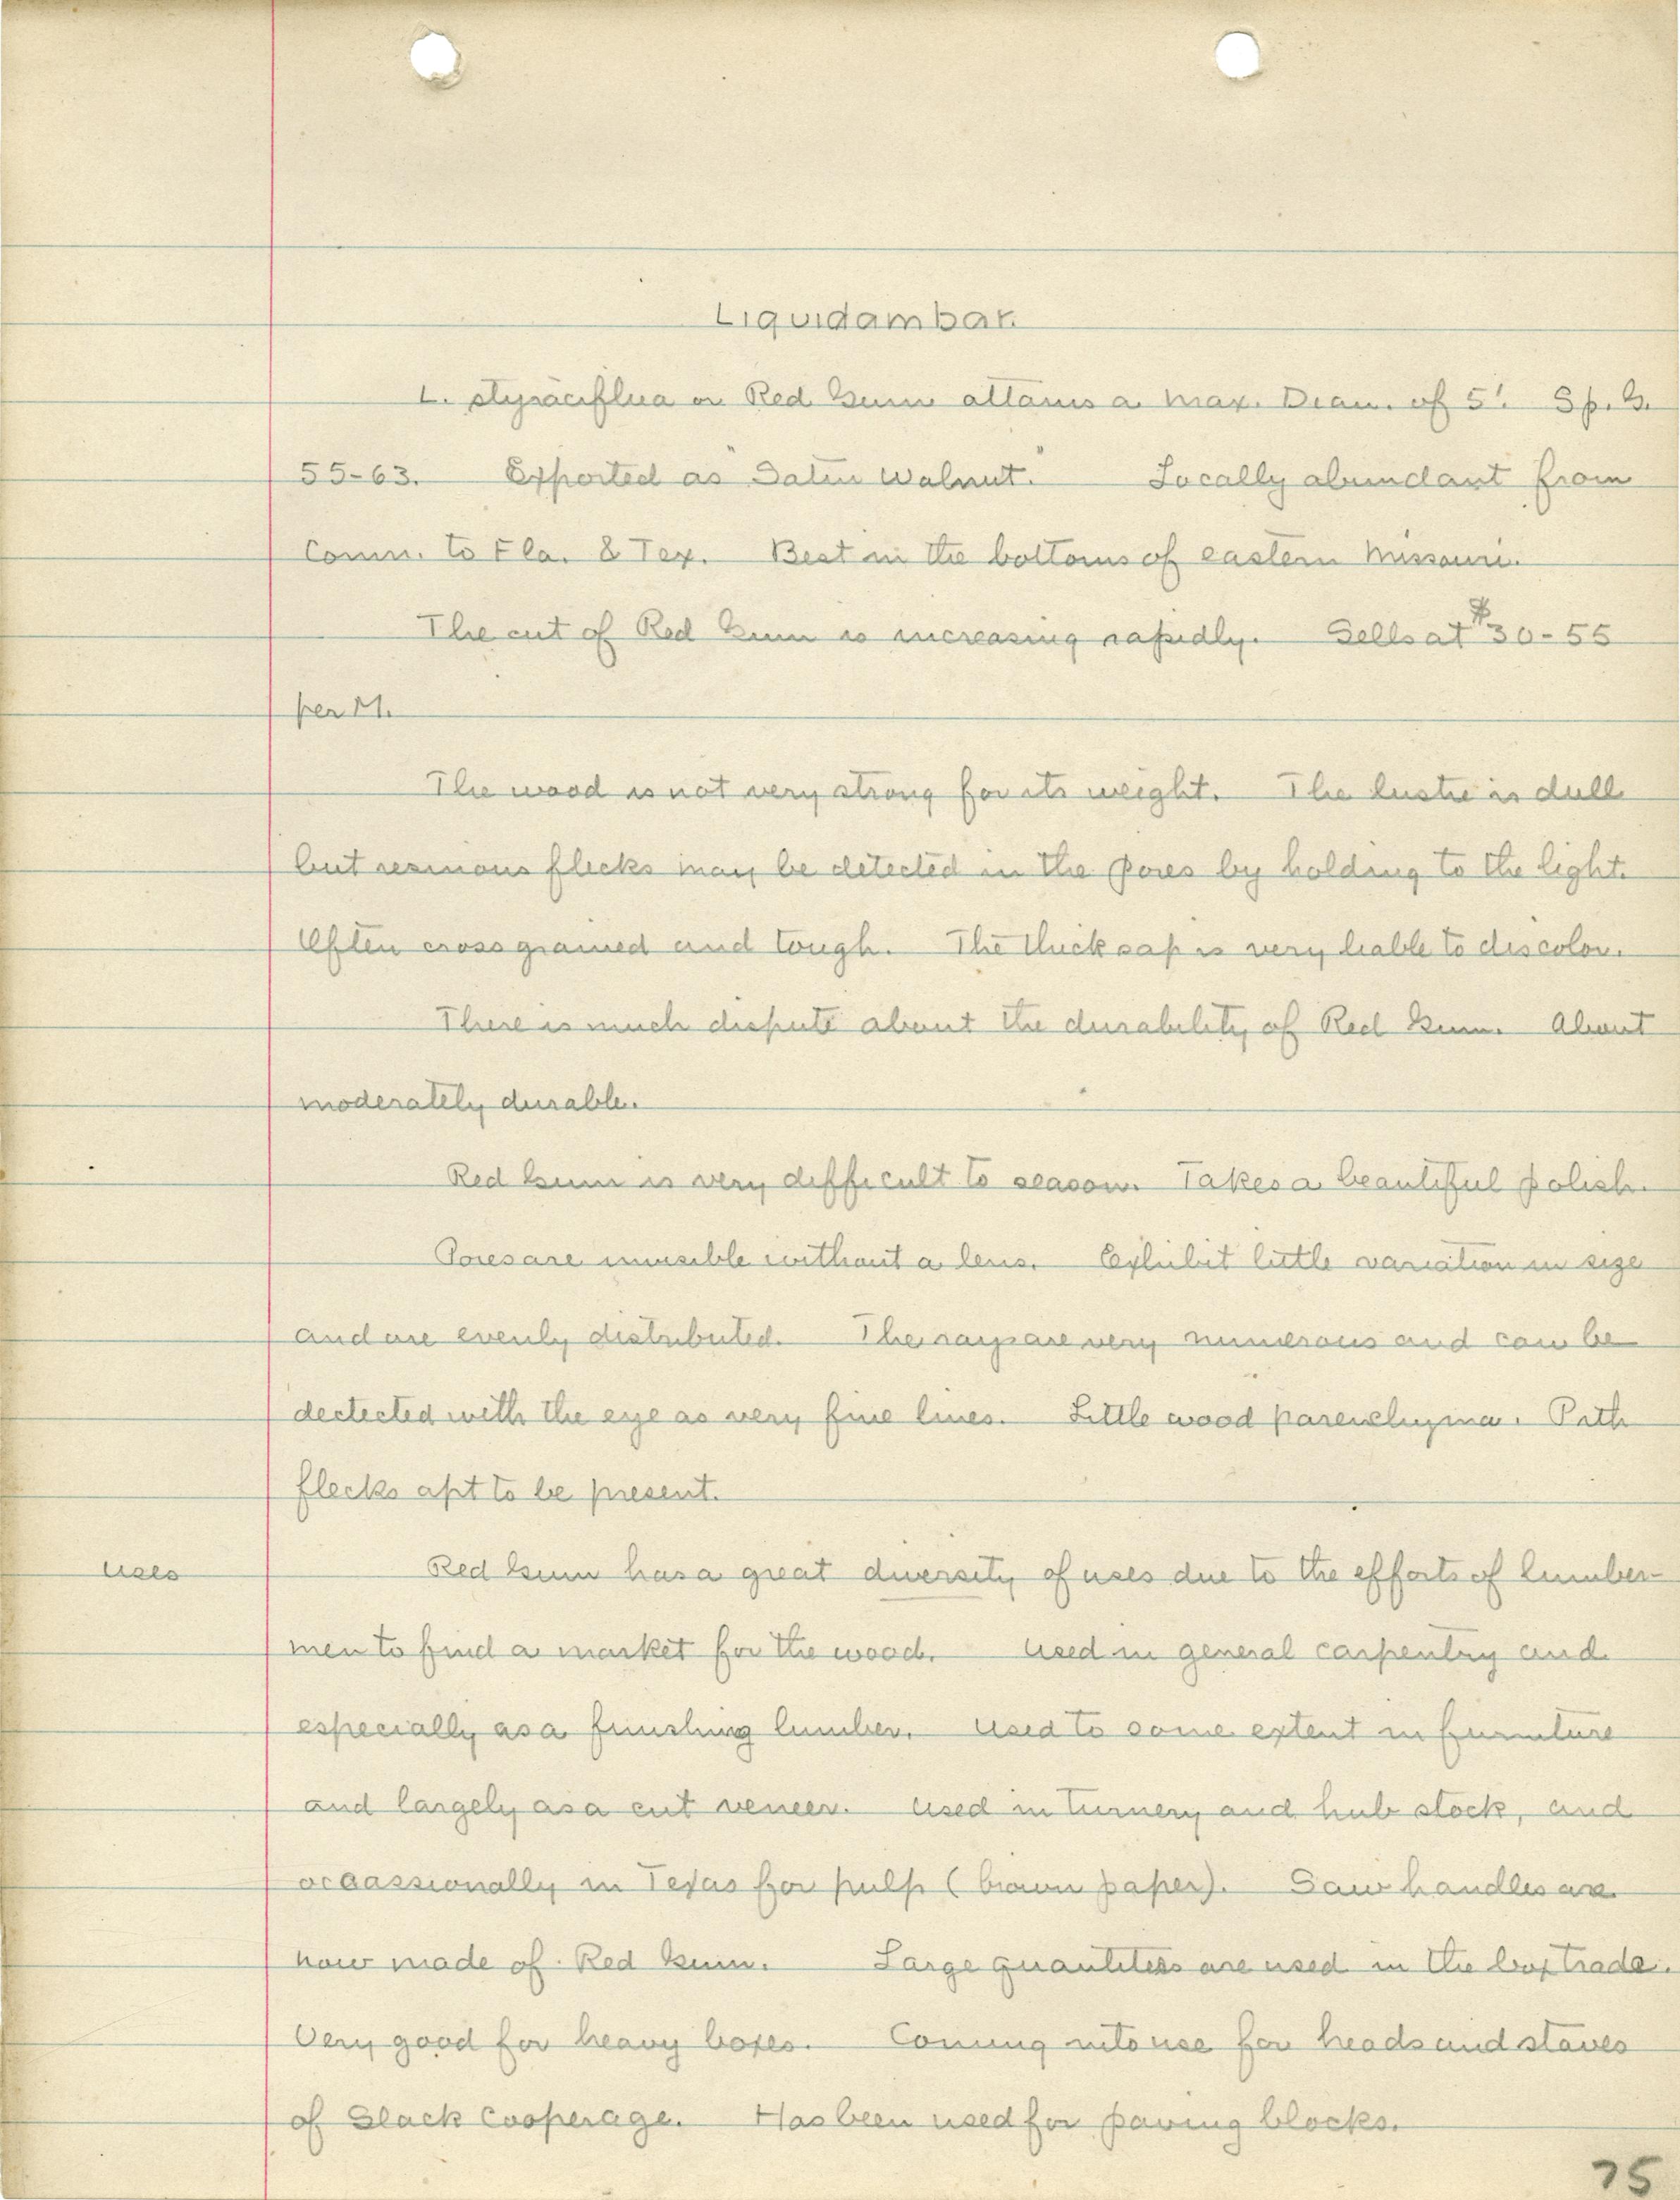 Liquidambar.
L. styraciflua or Red Gum attains a max. Diam. of 5'. Sp. G.
55-63. Exported as "Satin Walnut." Locally abundant from
Conn. to Fla. & Tex. Best in the bottoms of eastern Missouri.
The cut of Red Gum is increasing rapidly. Sells at $30-55
per M.
The wood is not very strong for its weight. The lustre is dull
but resinous flecks may be detected in the pores by holding to the light.
Often cross grained and tough. The thick sap is very liable to discolor.
There is much dispute about the durability of Red Gum. About
moderately durable.
Red Gum is very difficult to season. Takes a beautiful polish.
Pores are invisible without a lens. Exhibit little variation in size
and are evenly distributed. The rays are very numerous and can be
dectected with the eye as very fine lines. Little wood parenchyma. Pith
flecks apt to be present.
uses Red Gum has a great diversity of uses due to the efforts of lumber-
men to find a market for the wood. Used in general carpentry and
especially as a finishing lumber. Used to some extent in furniture
and largely as a cut veneer. Used in turnery and hub stock, and
ocaassionally in Texas for pulp (brown paper). Saw handles are
now made of Red Gum. Large quantities are used in the box trade.
Very good for heavy boxes. Coming into use for heads and staves
of Slack Cooperage. Has been used for paving blocks.
75